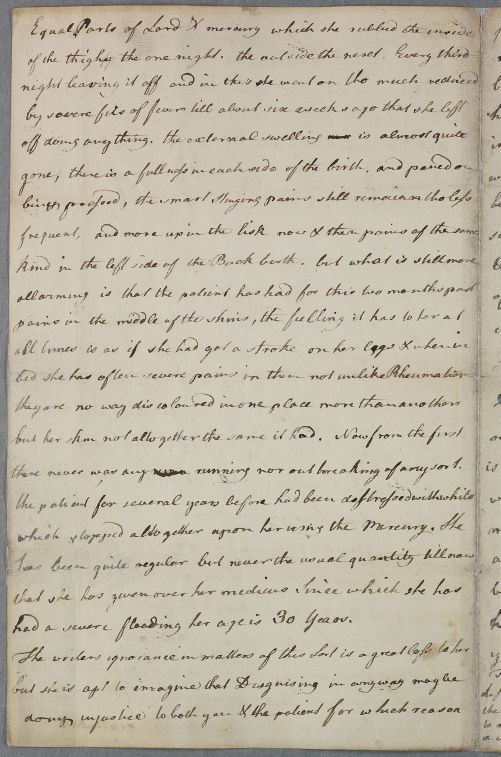 Equal Parts of Lard & mercury which she rubbed the inside
of the thighs the one night. the outside the next. Every third
night leaving it off and in this she went on tho much reduced
by severe fits of fever till about six weeks ago that she left
off doing anything. the external swelling is almost quite
gone, there is a fullness in each side of the birth. and pained on
being pressed, the smart stinging pains still remain tho less
frequent, and more up in the lisk now & then pains of the same
kind in the left side of the Back birth. but what is still more
allarming is that the patient has had for this two months past
pains in the middle of the shins, the feelling it has to her at
all times is as if she had got a stroke on her legs & when in
bed she has often severe pains in them not unlike Rheumatism
they are no way discoloured in one place more than another
but her skin not alltogether the same it had. Now from the first
there never was any running nor outbreaking of any sort.
the patient for several years before had been distressed with whits
which stopped alltogether upon her using the Mercury. She
has been quite regular but never the usual quantity till now
that she has given over her medicins since which she has
had a severe flooding her age is 30 Years.
The writers ignorance in matters of this sort is a great loss to her
but she is apt to imagine that Disguising in any way may be
doing injustice to both you & the patient for which reason